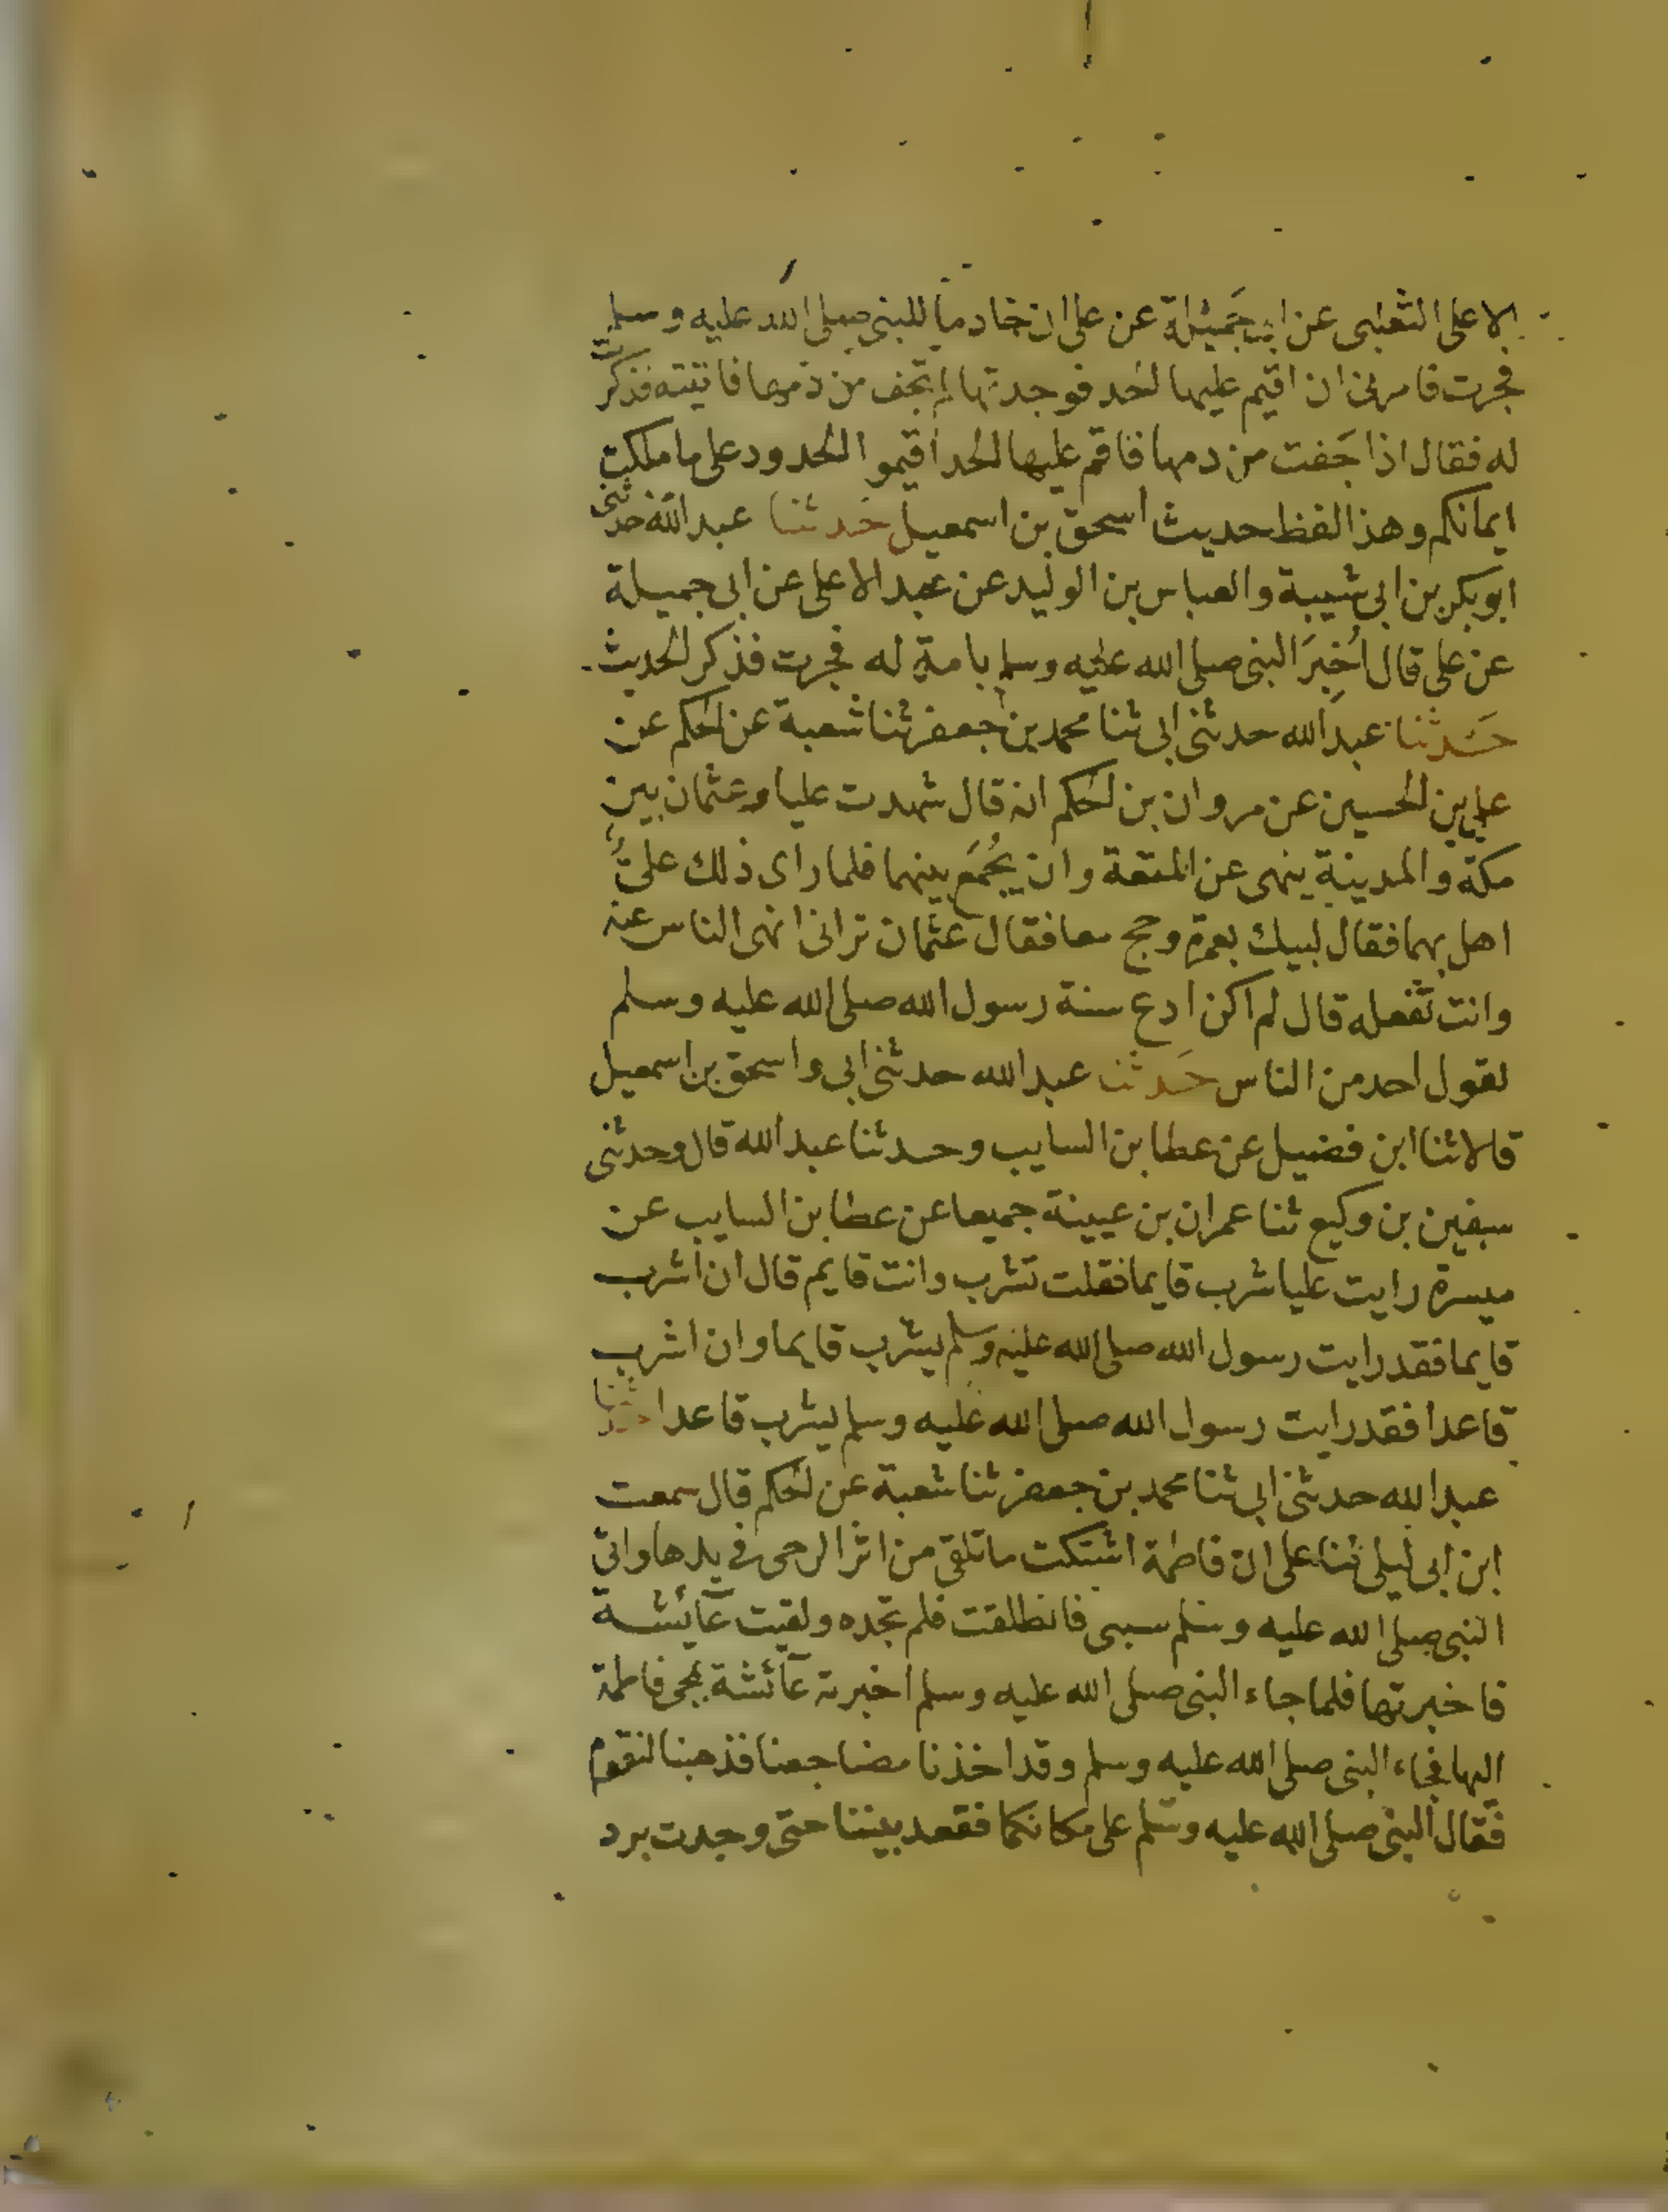 الاعلى الثعلبى عن ابى جَميْلة عن على ان خادما للنبى صلى الله عليه وسلم
فجرت فامرنى ان اقيم عليها الحد فوجدتها لم تجف من دمها فاتيته فذكرت
له فقال اذا جَفت من دمها فاقم عليها الحد اقيمو الحدود على ما ملكت
ايمانكم وهذا لفظ حديث اسحق بن اسمعيل حَدثنا عبد الله حدثنى
ابو بكر بن ابى شيبة والعباس بن الوليد عن عبد الاعلى عن ابى جميلة
عن على قال اُخبِرَ النبى صلى الله عليه وسلم بامةٍ له فجرت فذكر الحديث
حَدثنا عبد الله حدثنى ابى ثنا محمد بن جعفر ثنا شعبة عن الحكم عن
على بن الحسين عن مروان بن الحكم انه قال شهدت عليا وعثمان بين
مكة والمدينة ينهى عن المتعة وان يُجْمَع بينهما فلما راى ذلك علىٌّ
اهل بهما فقال لبيك بعمرة وحج معا فقال عثمان ترانى انهى الناس عنه
وانت تفعله قال لم اكن ادع سنة رسول الله صلى الله عليه وسلم
لقول احد من الناس حَدثنا عبد الله حدثنى ابى واسحق بن اسمعيل
قالا ثنا ابن فضيل عن عطا بن السايب وحدثنا عبد الله قال وحدثنى
سفين بن وكيع ثنا عمران بن عيينة جميعا عن عطا بن السايب عن
ميسرة رايت عليا شرب قايما فقلت تشرب وانت قايم قال ان اشرب
قايما فقد رايت رسول الله صلى الله عليه وسلم يشرب قايما وان اشرب
قاعدا فقد رايت رسول الله صلى الله عليه وسلم يشرب قاعدا حدثنا
عبد الله حدثنى ابى ثنا محمد بن جعفر ثنا شعبة عن الحكم قال سمعت
ابن ابى ليلى ثنا على ان فاطمة اشتكت ما تلقى من اثر الرحى فى يدها واتى
النبى صلى الله عليه وسلم سبى فانطلقت فلم تجده ولقيت عآئشة
فاخبرتها فلما جاء النبى صلى الله عليه وسلم اخبرته عآئشة بمجى فاطمة
اليها فجاء النبى صلى الله عليه وسلم وقد اخذنا مضاجعنا فذهبنا لنقوم
فقال النبى صلى الله عليه وسلم على مكانكما فقعد بيننا حتى وجدت برد